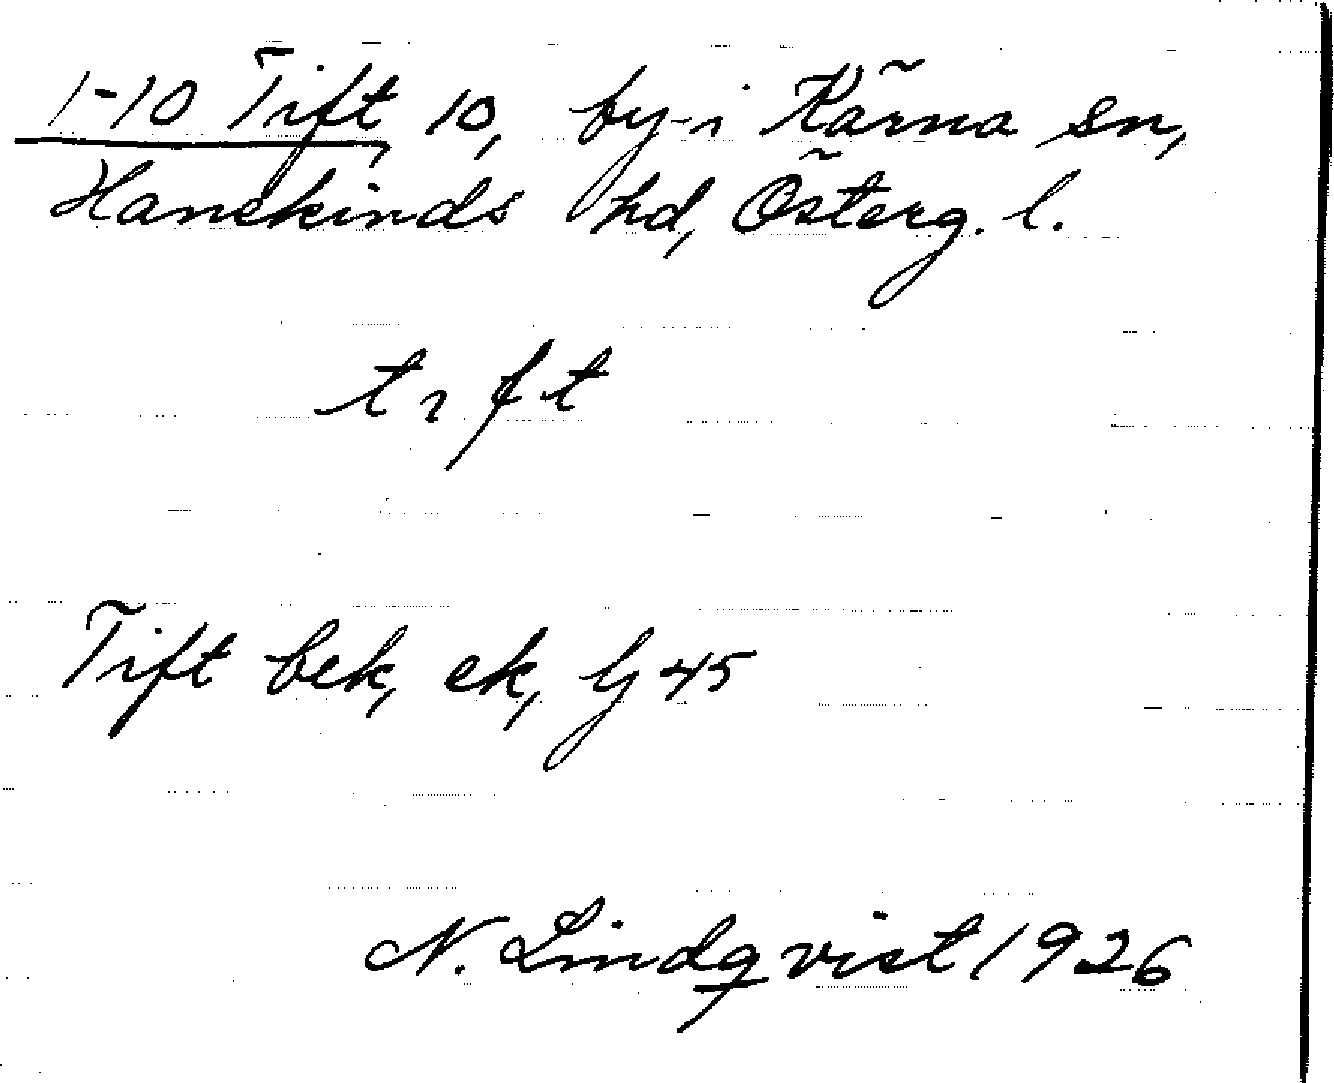 1-10 Tift, 10, by i Kärna sn,
Hanekinds hd, Österg. l.
tıft
Tift bek, ek, Gj 45
N. Lindqvist 1926